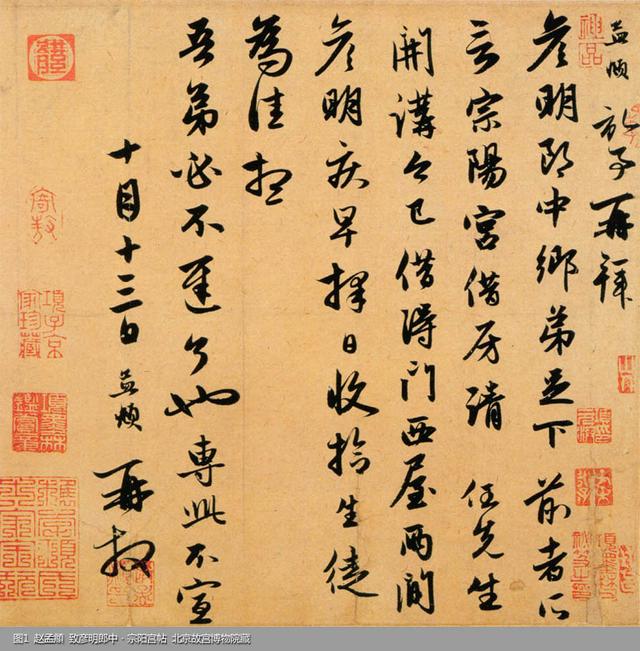 孟頫 記事再拜
彦明郎中鄉弟足下 前者所
言宗陽宫借房請 任先生
開講今已借得門西屋兩間
彦明疾早擇日收拾生徒
為佳想
吾弟必不遲了也專此不宣
十月十三日 孟頫 再拜
項子京家珍藏
图1 赵孟頫 致彦明郎中·宗阳宫帖 北京故宫博物院藏